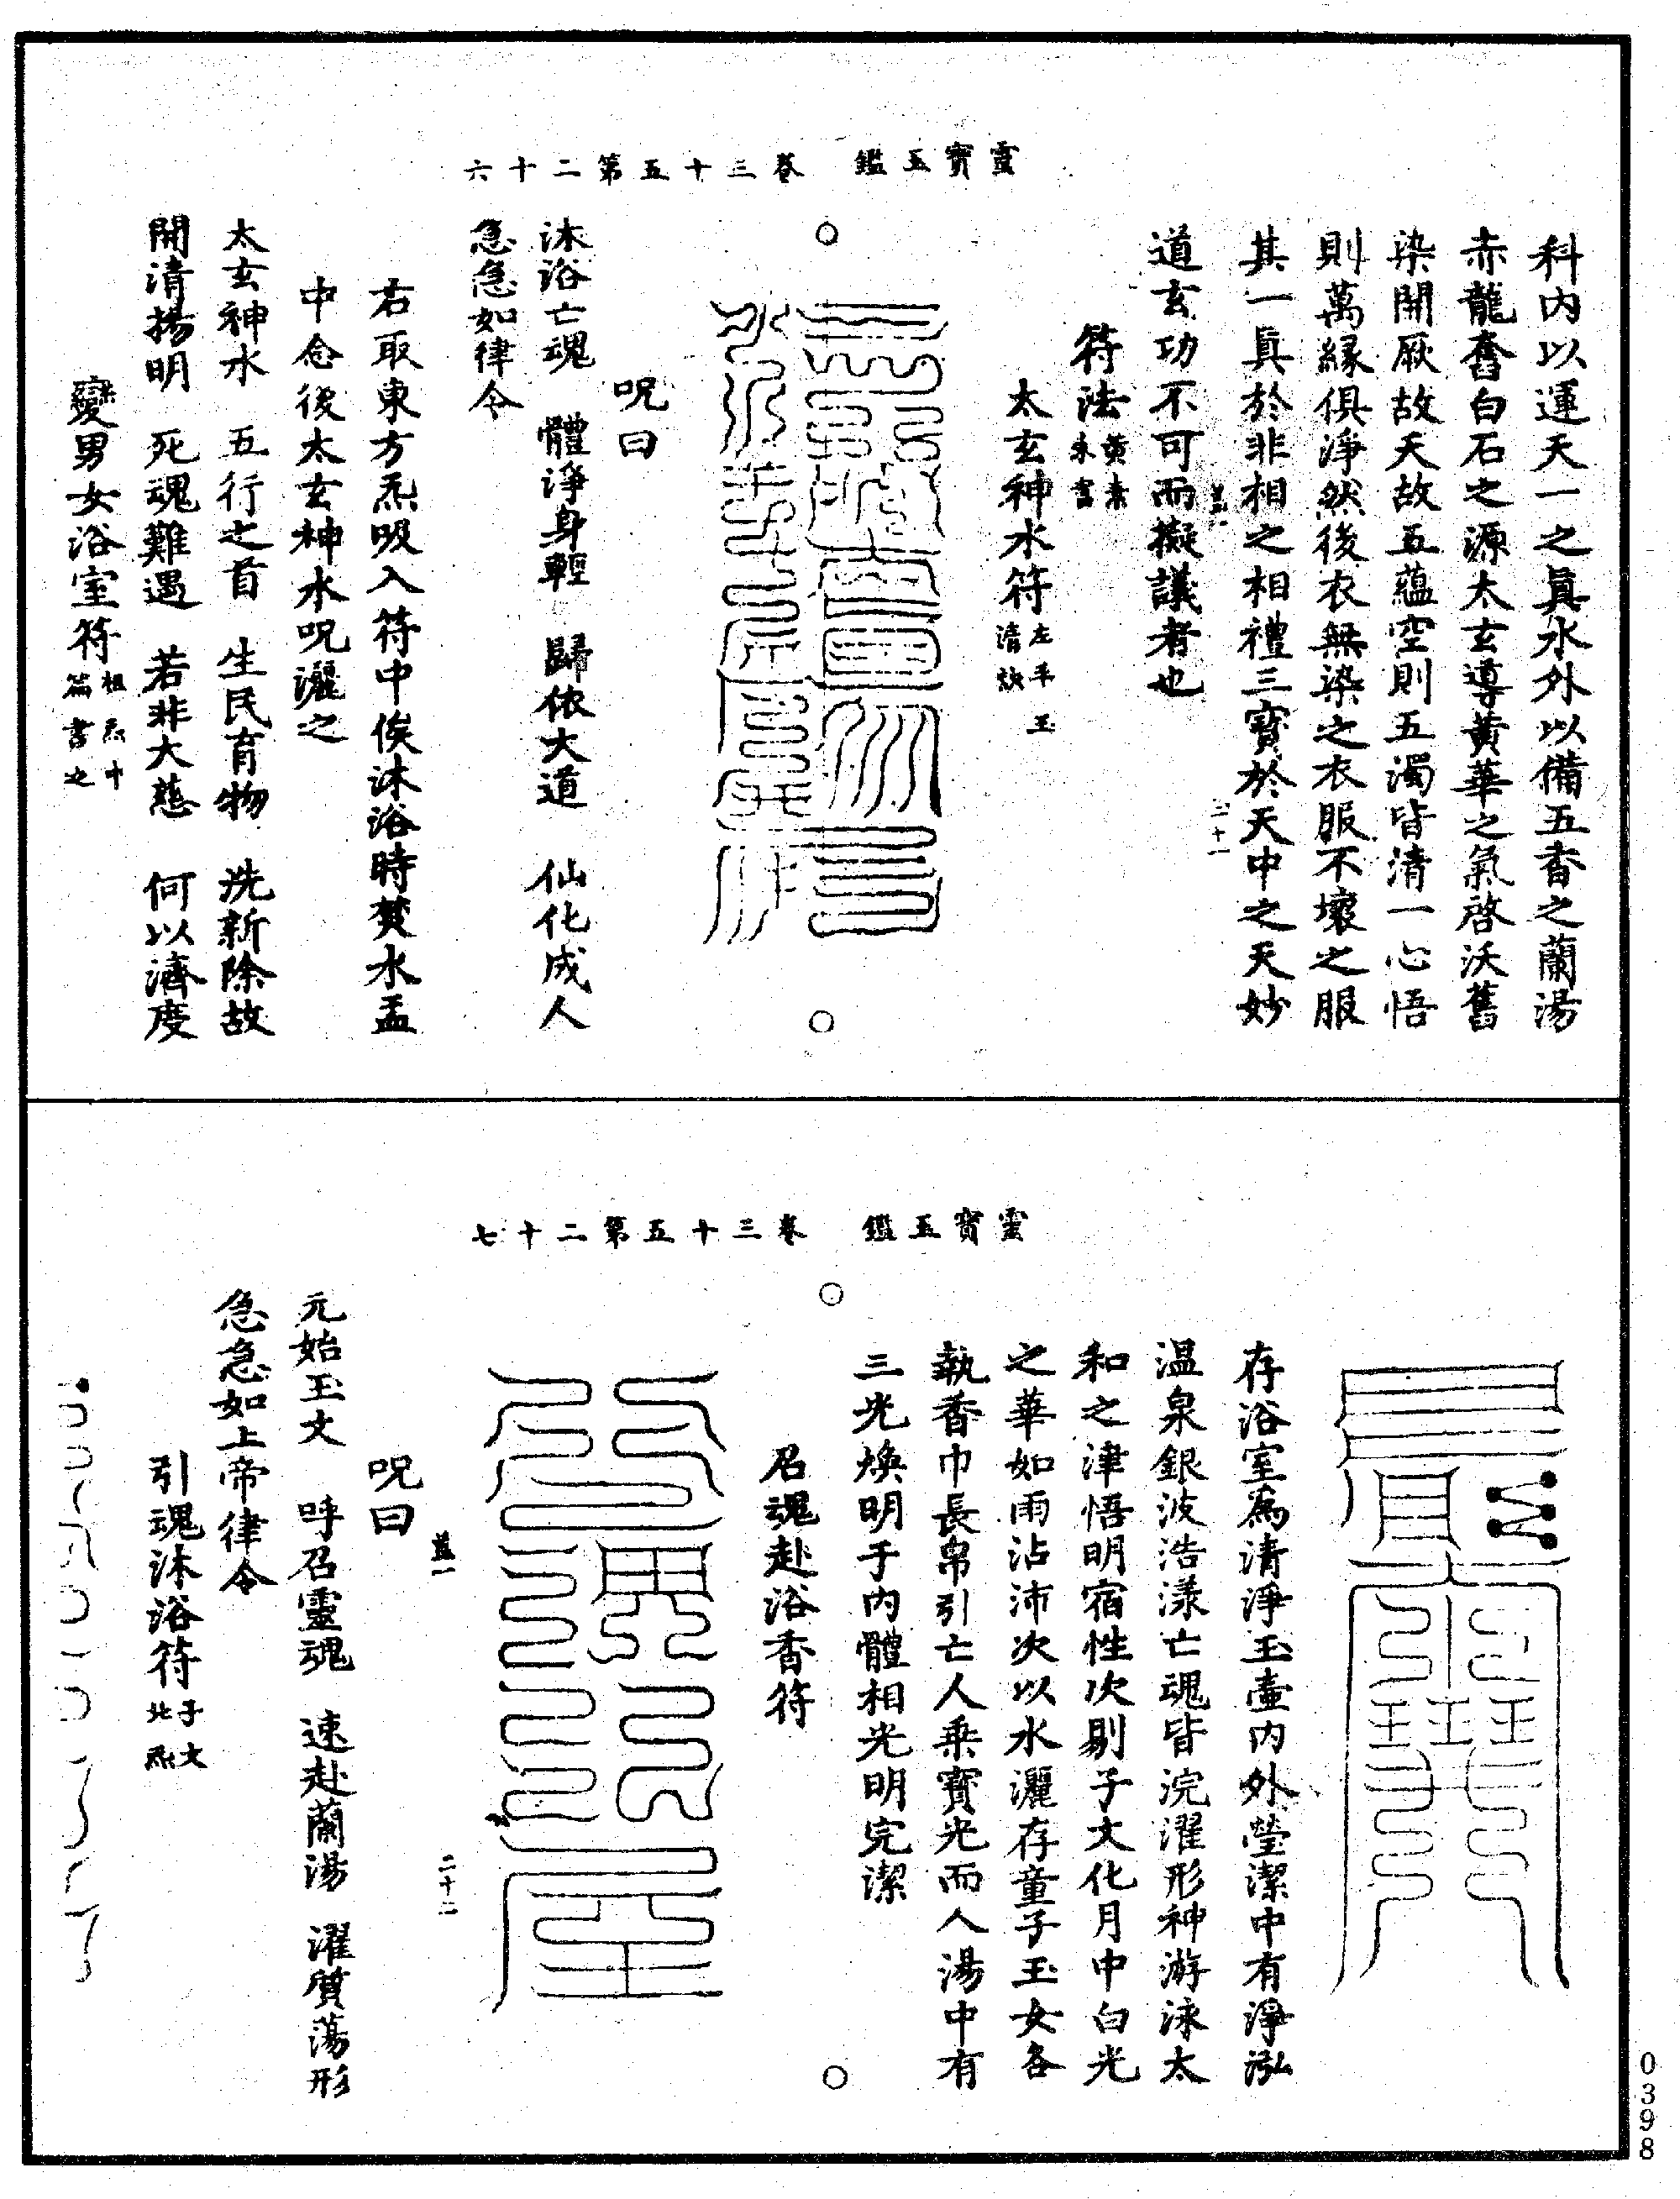 靈寶玉鑑 卷三十五第二十六
科內以運天一之眞水外以備五香之蘭湯
赤龍奮白石之源太玄導黃華之氣啓沃舊
染開厥故天故五蘊空則五濁皆清一心悟
則萬緣俱淨然後衣無染之衣服不壞之服
其一眞於非相之相禮三寶於天中之天妙
二十一
道玄功不可而擬議者也
符法黃素朱書
太玄神水符左手玉清訣
呪曰
沐浴亡魂 體淨身輕 歸依大道 仙化成人
急急如律令
右取東方炁吸入符中俟沐浴時焚水盂
中念後太玄神水呪灑之
太玄神水 五行之首 生民育物 洗新除故
開清揚明 死魂難遇 若非大慈 何以濟度
變男女浴室符祖炁十篇書之
靈寶玉鑑 卷三十五第二十七
存浴室爲清淨玉壺內外瑩潔中有淨泓
溫泉銀波浩漾亡魂皆浣濯形神游泳太
和之津悟明宿性次剔子文化月中白光
之華如雨沾沛次以水灑存童子玉女各
執香巾長帛引亡人乘寶光而入湯中有
三光煥明于內體相光明完潔
召魂赴浴香符
二十二
呪曰
元始玉文 呼召靈魂 速赴蘭湯 濯質蕩形
急急如上帝律令
引魂沐浴符子文北炁
0398